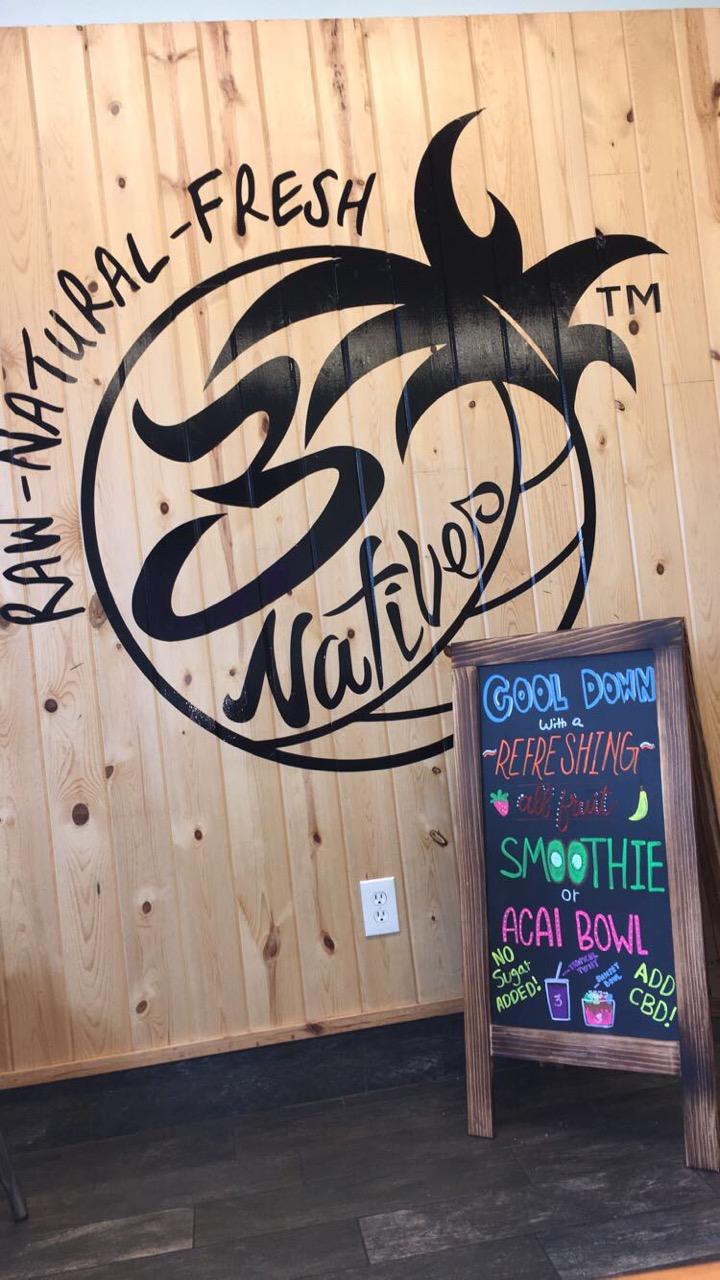 RAW-NATURAL-FRESH
TM
3
Natives
COOL DOWN
with a
~REFRESHING~
all fruit
SMOOTHIE
or
ACAI BOWL
NO
Sugar
ADDED!
TROPICAL
TWIST
3
SUNSET
BOWL
ADD
CBD!